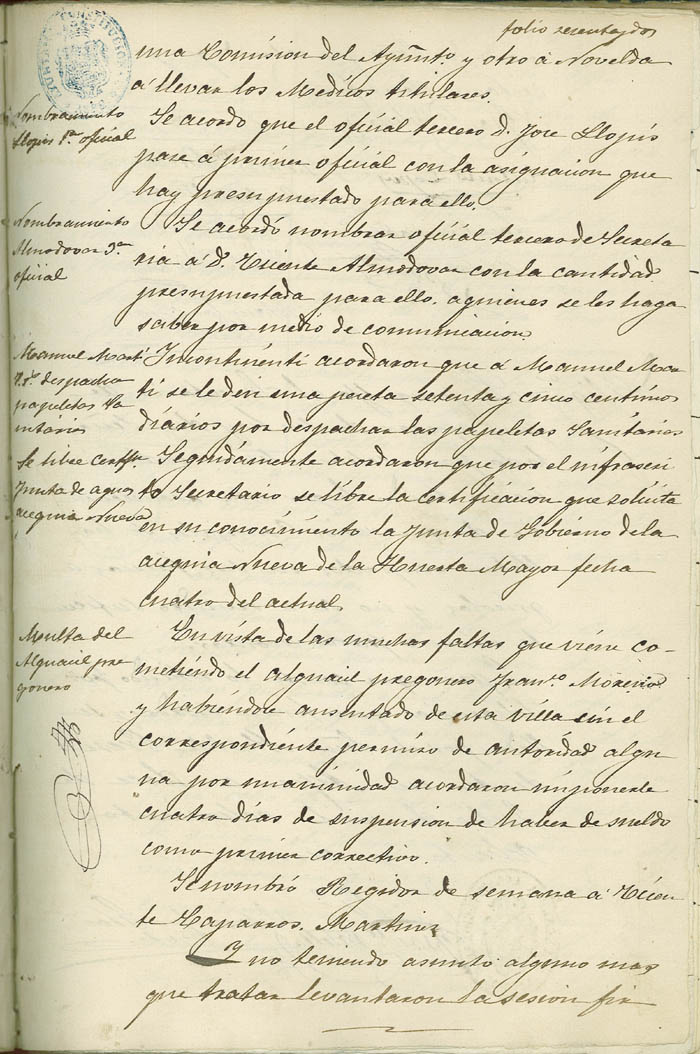 folio sesentaydos
una Comision del Ayuntº y otro á Novelda
a llevar los Medicos titulares.
Nombramiento
Llopis 1er oficial
Se acordo que el oficial tercero d. Jose Llopis
pase á primer oficial con la asignacion que
hay presupuestado para ello.
Nombramiento
Almodovar 3er
oficial
Se acordó nombrar oficial tercero de Secreta
ria á Dn Vicente Almodovar con la cantidad
presupuestada para ello. a quienes se les haga
saber por medio de comunicacion.
Manuel Martí
despachar
papeletas Sa
nitárias
Incontinénti acordaron que á Manuel Mar
tí se le den una peseta setenta y cinco centimos
diários por despachar las papeletas Sanitarias
Se libre certifn
Junta de aguas
acequia Nueva
Seguidamente acordaron que por el infrascri
to Secretario se libre la certificacion que solicita
en su conocimiento la Junta de Gobiérno de la
acequia Nueva de la Huerta Mayor fecha
cuatro del actual.
Multa del
Alguacil pre
gonero
En vista de las muchas faltas que viene co-
metiendo el alguacil pregonero Franco Moreno
y habiéndose ausentado de esta villa sin el
correspondiente permiso de autoridad algu
na por unanimidad acordaron imponerle
cuatro dias de suspension de haber de sueldo
como primer correctivo.
Se nombró Regidor de semana á Vicen
te Caparros. Martinez
Y no teniendo asunto alguno mas
que tratar levantaron la sesion fir